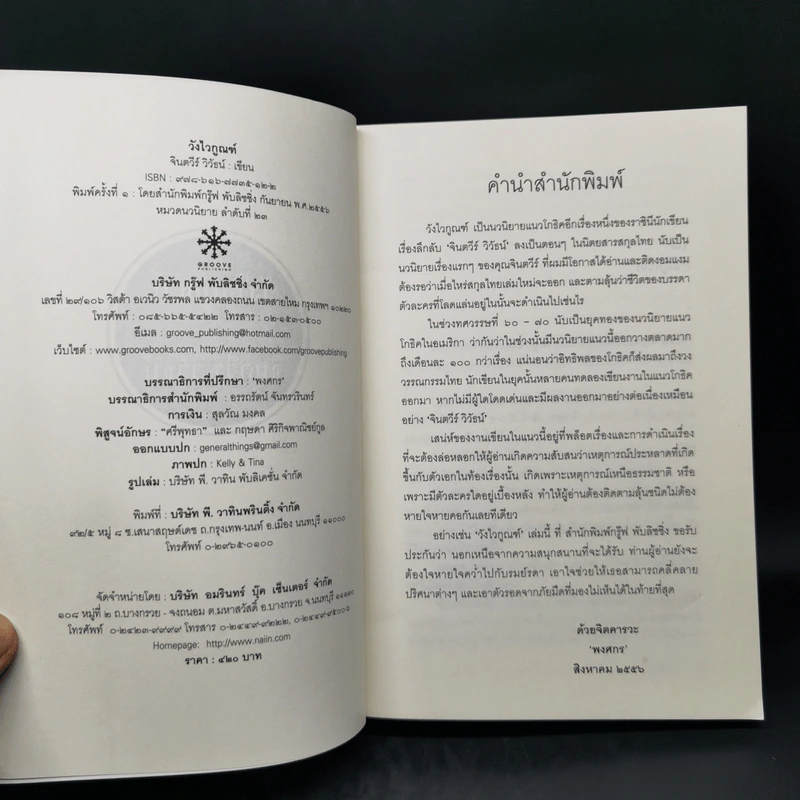 วังไวกูณฑ์
จินตวีร์ วิวัธน์ : เขียน
ISBN : ๙๗๘-๖๑๖-๗๗๓๕-๑๒-๒
พิมพ์ครั้งที่ ๑ : โดยสำนักพิมพ์กรู๊ฟ พับลิชชิ่ง กันยายน พ.ศ.๒๕๕๖
หมวดนวนิยาย ลำดับที่ ๒๓
GROOVE
PUBLISHING
บริษัท กรู๊ฟ พับลิชชิ่ง จำกัด
เลขที่ ๒๙/๑๐๖ วิสต้า อเวนิว วัชรพล แขวงคลองถนน เขตสายไหม กรุงเทพฯ ๑๐๒๒๐
โทรศัพท์ : ๐๘๕-๖๖๕-๕๔๒๒ โทรสาร : ๐๒-๑๕๓-๐๕๐๐
อีเมล : groove_publishing@hotmail.com
เว็บไซต์ : www.groovebooks.com, http://www.facebook.com/groovepublishing
บรรณาธิการที่ปรึกษา : 'พงศกร'
บรรณาธิการสำนักพิมพ์ : อรรถรัตน์ จันทรวรินทร์
การเงิน : สุลวัณ มงคล
พิสูจน์อักษร : "ศรีพุทธา" และ กฤษดา ศิริกิจพาณิชย์กูล
ออกแบบปก : generalthings@gmail.com
ภาพปก : Kelly & Tina
รูปเล่ม : บริษัท พี. วาทิน พับลิเคชั่น จำกัด
พิมพ์ที่ : บริษัท พี. วาทินพรินติ้ง จำกัด
๙๒/๕ หมู่ ๘ ซ.เสนาสฤษดิ์เดช ถ.กรุงเทพ-นนท์ อ.เมือง นนทบุรี ๑๑๐๐๐
โทรศัพท์ ๐-๒๙๖๕-๐๑๐๐
จัดจำหน่ายโดย : บริษัท อมรินทร์ บุ๊ค เซ็นเตอร์ จำกัด
๑๐๘ หมู่ที่ ๒ ถ.บางกรวย - จงถนอม ต.มหาสวัสดิ์ อ.บางกรวย จ.นนทบุรี ๑๑๑๓๐
โทรศัพท์ ๐-๒๔๒๓-๙๙๙๙ โทรสาร ๐-๒๔๔๙-๙๒๒๒, ๐-๒๔๔๙-๙๕๐๐-๖
Homepage: http://www.naiin.com
ราคา : ๔๒๐ บาท
คำนำสำนักพิมพ์
วังไวกูณฑ์ เป็นนวนิยายแนวโกธิคอีกเรื่องหนึ่งของราชินีนักเขียน
เรื่องลึกลับ 'จินตวีร์ วิวัธน์' ลงเป็นตอนๆ ในนิตยสารสกุลไทย นับเป็น
นวนิยายเรื่องแรกๆ ของคุณจินตวีร์ ที่ผมมีโอกาสได้อ่านและติดงอมแงม
ต้องรอว่าเมื่อไหร่สกุลไทยเล่มใหม่จะออก และตามลุ้นว่าชีวิตของบรรดา
ตัวละครที่โลดแล่นอยู่ในนั้นจะดำเนินไปเช่นไร
ในช่วงทศวรรษที่ ๖๐ – ๗๐ นับเป็นยุคทองของนวนิยายแนว
โกธิคในอเมริกา ว่ากันว่าในช่วงนั้นมีนวนิยายแนวนี้ออกวางตลาดมาก
ถึงเดือนละ ๑๐๐ กว่าเรื่อง แน่นอนว่าอิทธิพลของโกธิคก็ส่งผลมาถึงวง
วรรณกรรมไทย นักเขียนในยุคนั้นหลายคนทดลองเขียนงานในแนวโกธิค
ออกมา หากไม่มีผู้ใดโดดเด่นและมีผลงานออกมาอย่างต่อเนื่องเหมือน
อย่าง 'จินตวีร์ วิวัธน์'
เสน่ห์ของงานเขียนในแนวนี้อยู่ที่พล็อตเรื่องและการดำเนินเรื่อง
ที่จะต้องล่อหลอกให้ผู้อ่านเกิดความสับสนว่าเหตุการณ์ประหลาดที่เกิด
ขึ้นกับตัวเอกในท้องเรื่องนั้น เกิดเพราะเหตุการณ์เหนือธรรมชาติ หรือ
เพราะมีตัวละครใดอยู่เบื้องหลัง ทำให้ผู้อ่านต้องติดตามลุ้นชนิดไม่ต้อง
หายใจหายคอกันเลยทีเดียว
อย่างเช่น 'วังไวกูณฑ์' เล่มนี้ ที่ สำนักพิมพ์กรู๊ฟ พับลิชชิ่ง ขอรับ
ประกันว่า นอกเหนือจากความสนุกสนานที่จะได้รับ ท่านผู้อ่านยังจะ
ต้องใจหายใจคว่ำไปกับรมย์รดา เอาใจช่วยให้เธอสามารถคลี่คลาย
ปริศนาต่างๆ และเอาตัวรอดจากภัยมืดที่มองไม่เห็นได้ในท้ายที่สุด
ด้วยจิตคารวะ
'พงศกร'
สิงหาคม ๒๕๕๖